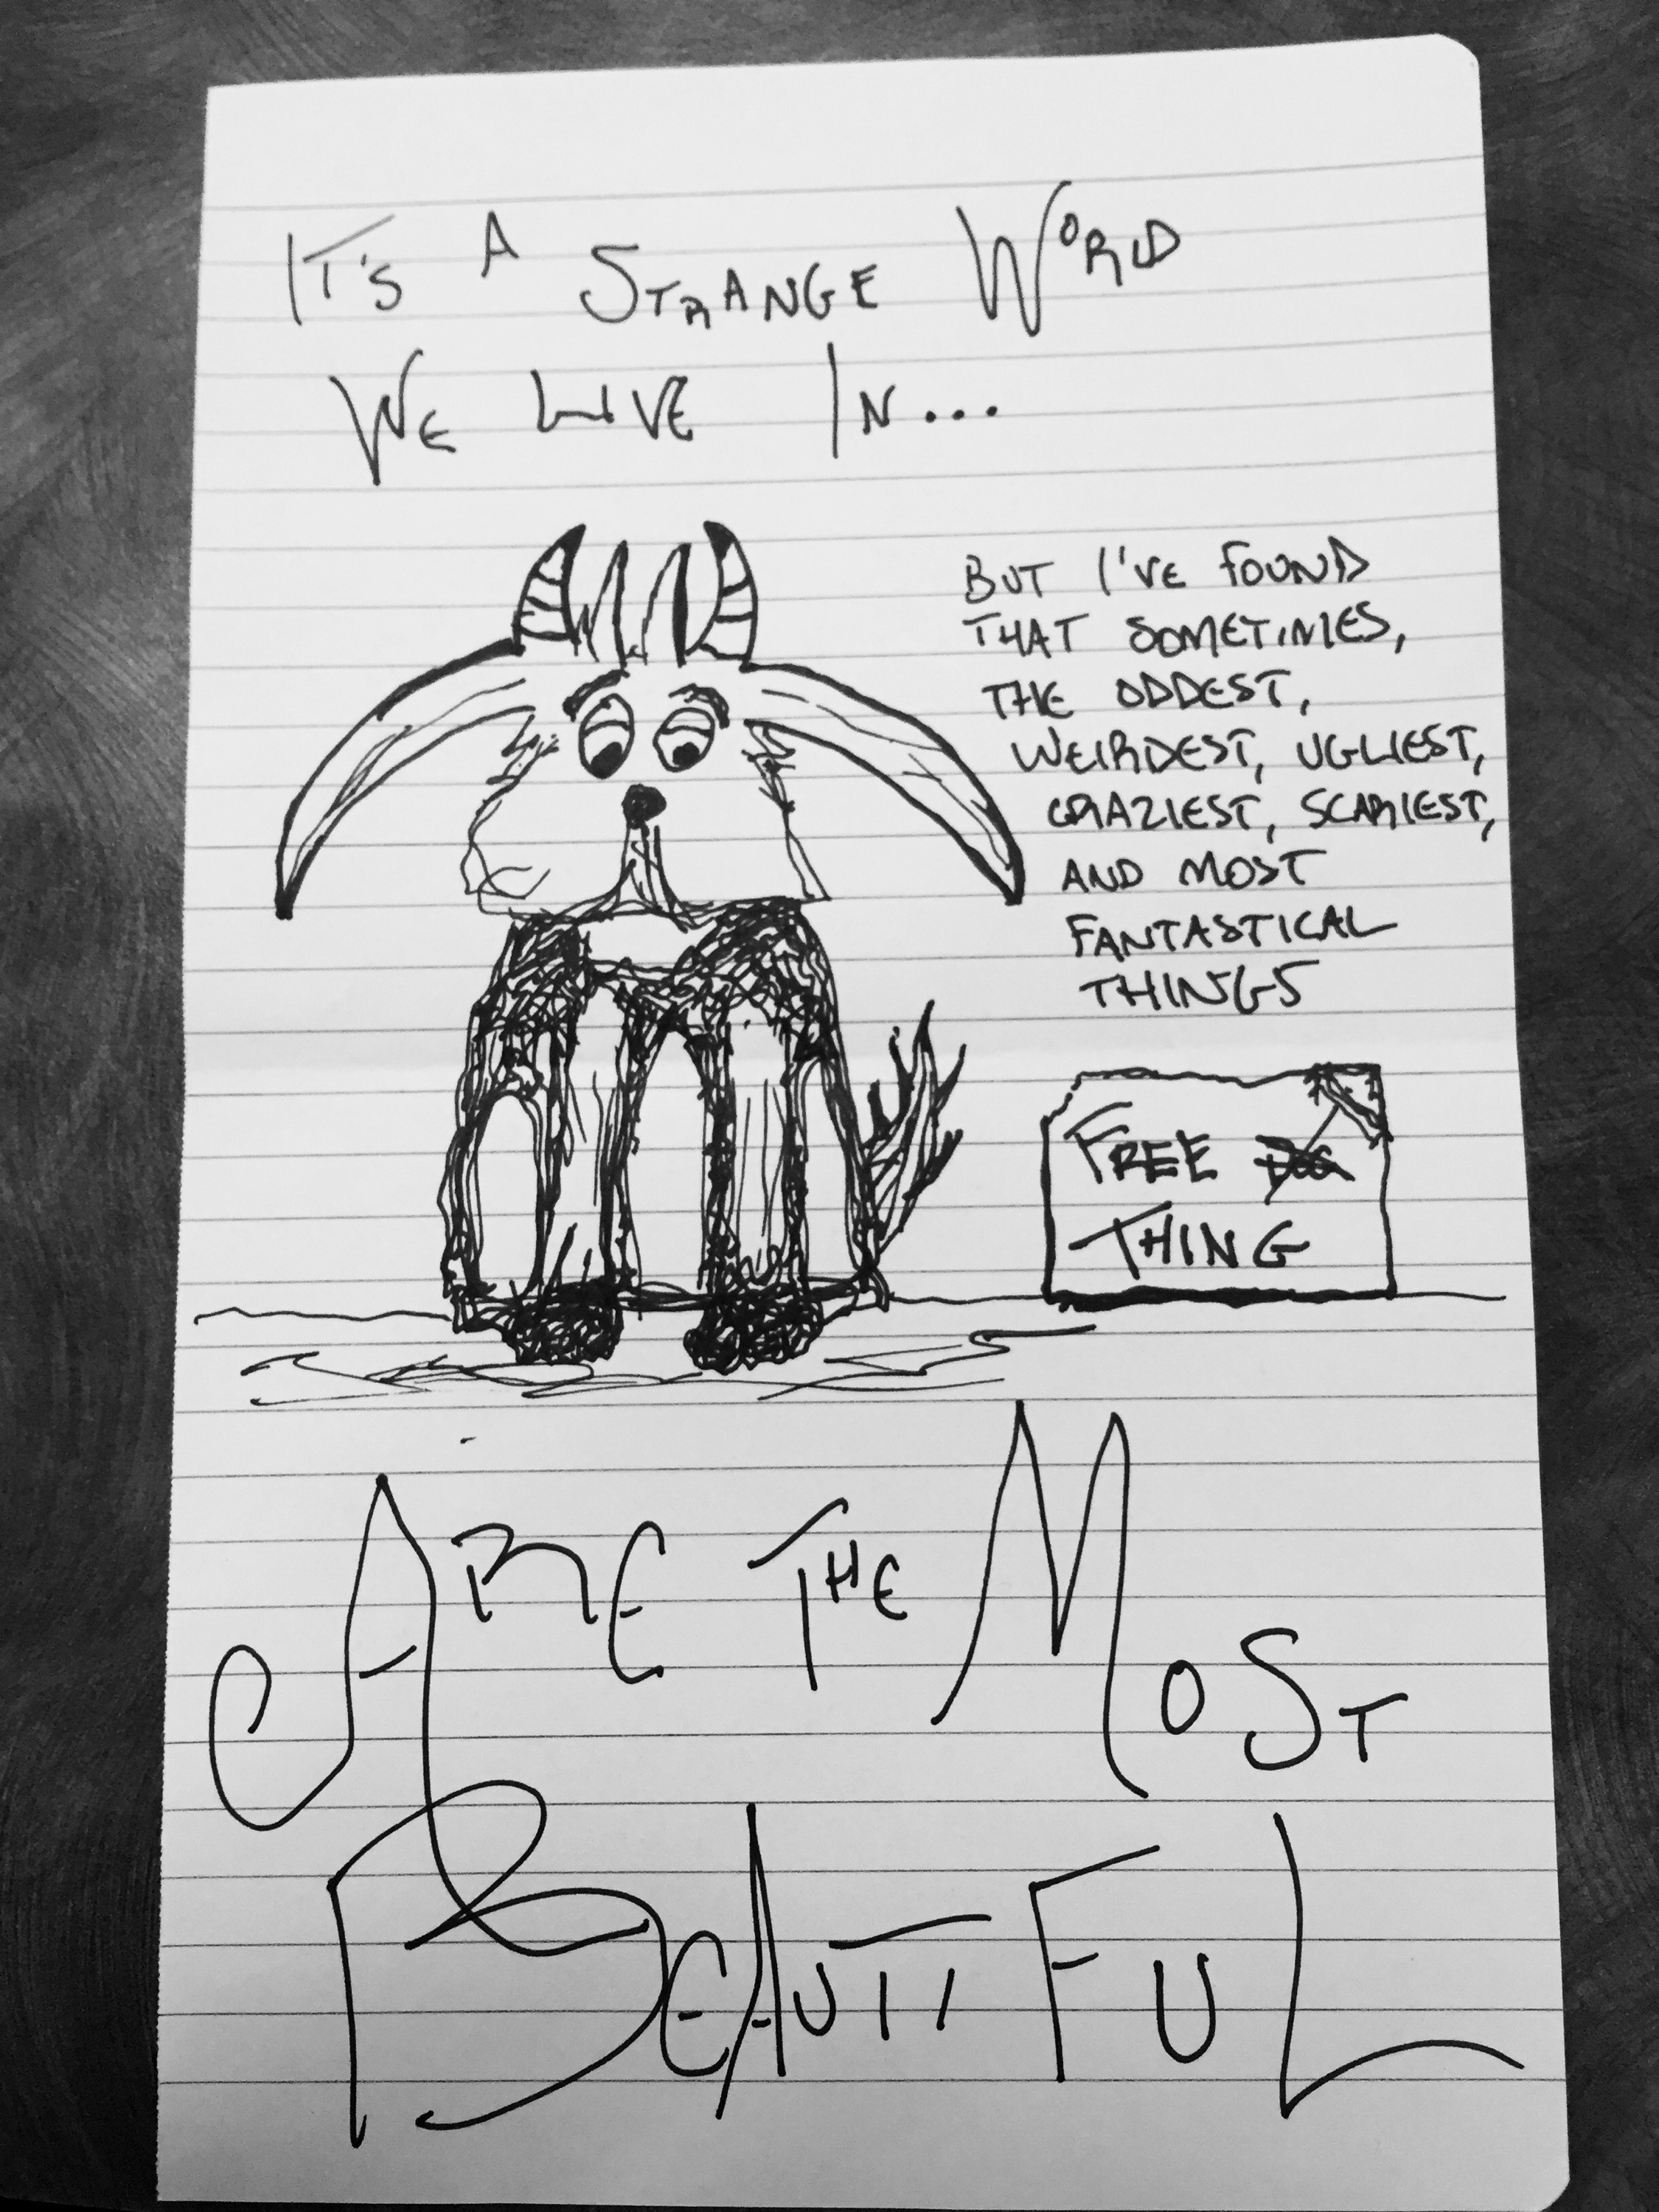 IT'S A STRANGE WORLD
WE LIVE IN...
BUT I'VE FOUND
THAT SOMETIMES,
THE ODDEST,
WEIRDEST, UGLIEST,
CRAZIEST, SCARIEST,
AND MOST
FANTASTICAL
THINGS
FREE DOG
THING
ARE THE MOST
BEAUTIFUL